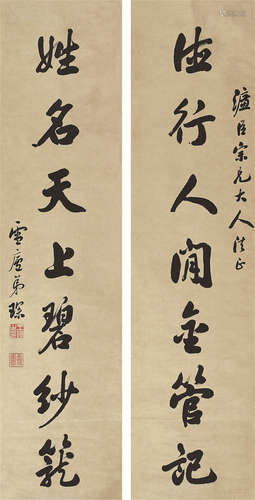 德行人間金管記
姓名天上碧紗籠
宗兄大人法正
雪廬弟琛